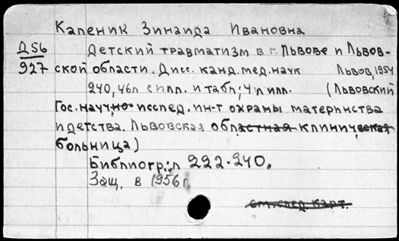 Капеник Зинаида Ивановна
Д56
927
Детский травматизм в г. Львове и Львов-
ской области. Дисс. канд. мед. наук Львов, 1954
240, 46л с илл. и табл; 4л илл. (Львовский
Гос. научно исслед. ин-т охраны материнства
и детства. Львовская областная клиническая
больница)
Библиогр: л 222-240.
Защ. в 1956 г.
см. след. карт.